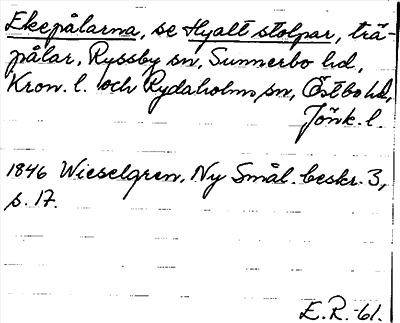 Ekepålarna, se Hyalt stolpar, trä-
pålar, Ryssby sn, Sunnerbo hd,
Kron. l. och Rydaholms sn, Östbo hd,
Jönk. l.
1846 Wieselgren. Ny Smål. beskr. 3,
s. 17.
E.R.-61.